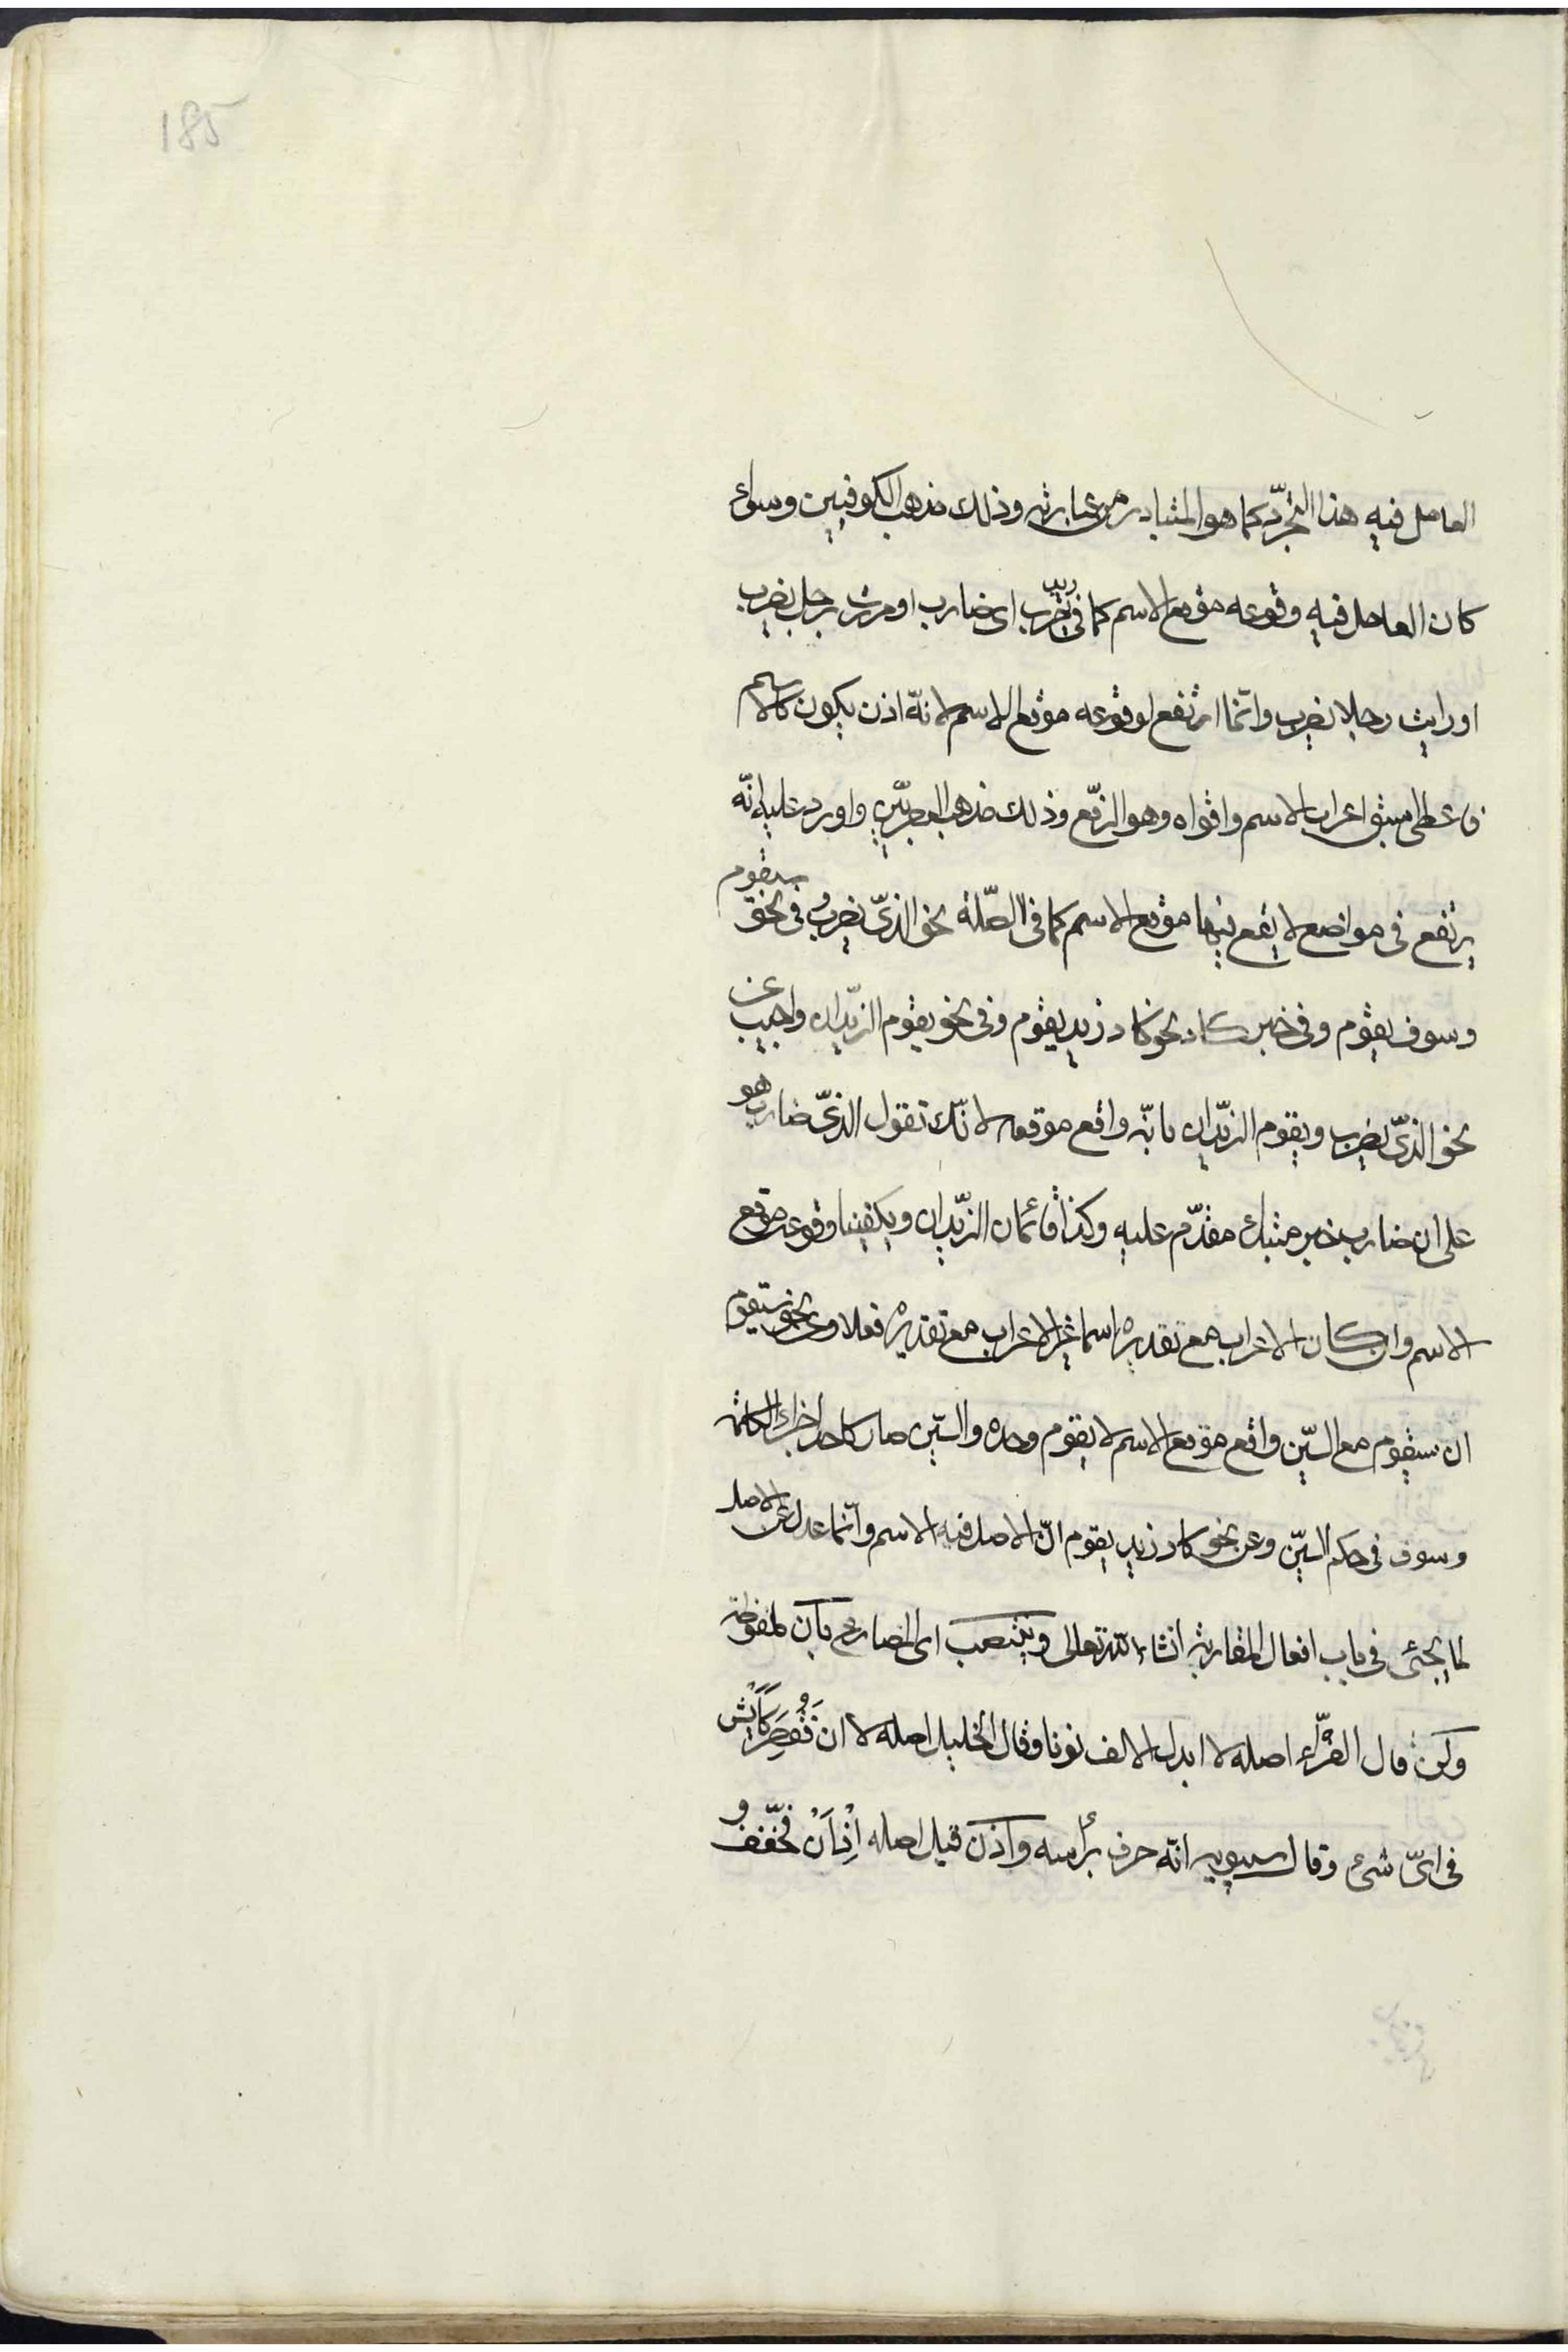 185
العامل فيه هذا التجرّد كما هو المتبادر من عبارته وذلك مذهب الكوفيين وسواء
كان العامل فيه وقوعه موقع الاسم كما فى زيد يضرب اى ضارب او مررت برجل يضرب
او رايت رجلا يضرب وانّما ارتفع لوقوعه موقع الاسم لانّه اذن يكون كالاسم
فاعطى اسبق اعراب الاسم واقواه وهو الرّفع وذلك مذهب البصريّين واورد عليه انّه
يرتفع فى مواضع لا يقع فيها موقع الاسم كما فى الصّلة نحو الذىّ يضرب وفى نحو سيقوم
وسوف يقوم وفى خبر كاد نحو كاد زيد يقوم وفى نحو يقوم الزيّدان واجيب عن
نحو الذىّ يضرب ويقوم الزيّدان بانّه واقع موقعه لانّك تقول الذىّ ضارب هو
على ان ضارب خبر مبتداء مقدّم عليه وكذا قائمان الزيّدان ويكفينا وقوعه موقع
الاسم وان كان الاعراب مع تقديره اسما غير الاعراب مع تقديره فعلا وعن نحو سيقوم
ان سيقوم مع السّين واقع موقع الاسم لا يقوم وحده والسّين صار كاحد اجزاء الكلمة
وسوف فى حكم السّين وعن نحو كاد زيد يقوم انّ الاصل فيه الاسم وانّما عدل عن الاصل
لما يجئ فى باب افعال المقاربة انشاء الله تعالى وينتصب اى المضارع بان ملفوظة
ولن قال الفرّاء اصله لا ابدل الالف نونا وقال الخليل اصله لا ان فقصر كايش
فى اىّ شئ وقال سيبويه انّه حرف برأسه واذن قيل اصله اذ ان فخفّف و